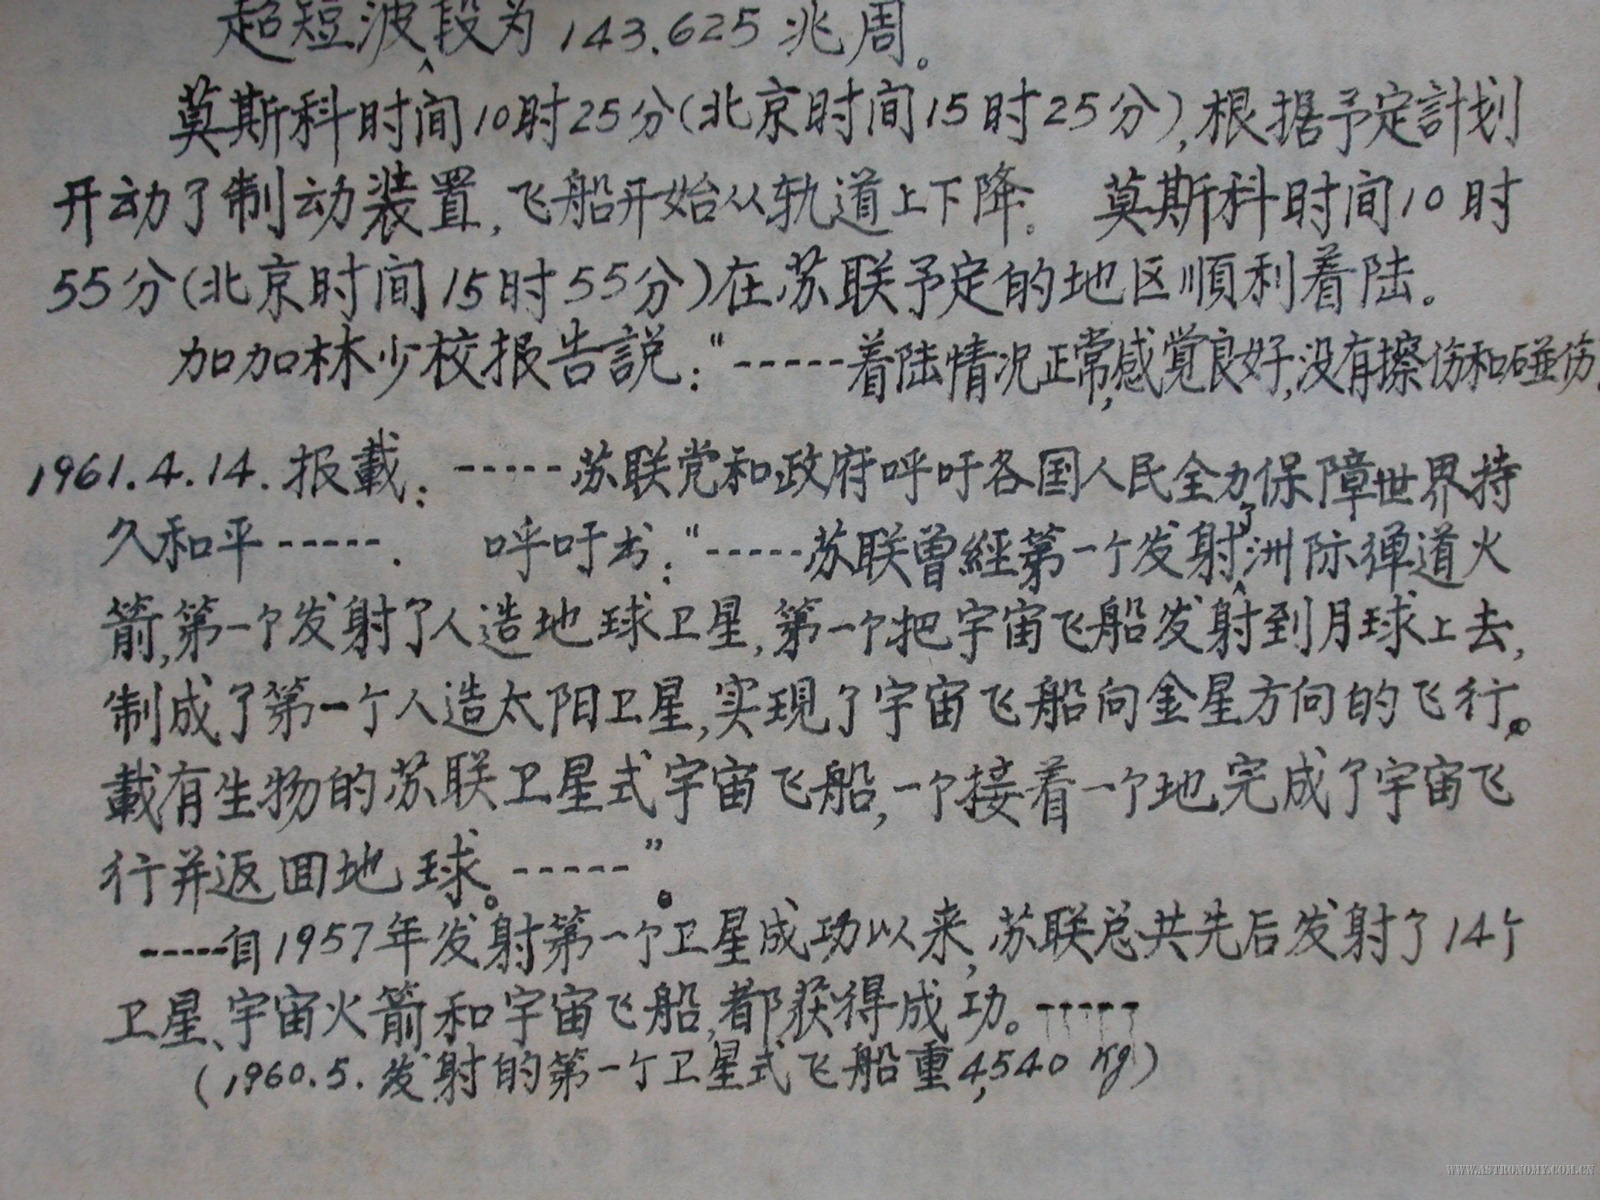 超短波段为143.625兆周。
莫斯科时间10时25分(北京时间15时25分),根据予定計划
开动了制动装置,飞船开始从轨道上下降。莫斯科时间10时
55分(北京时间15时55分)在苏联予定的地区順利着陆。
加加林少校报告説:“-----着陆情况正常,感覚良好,没有擦伤和碰伤
1961.4.14.报載:-----苏联党和政府呼吁各国人民全力保障世界持
久和平-----. 呼吁书:“-----苏联曾經第一个发射了洲际弹道火
箭,第一个发射了人造地球卫星,第一个把宇宙飞船发射到月球上去,
制成了第一个人造太阳卫星,实現了宇宙飞船向金星方向的飞行。
載有生物的苏联卫星式宇宙飞船,一个接着一个地完成了宇宙飞
行并返回地球。-----”。
-----自1957年发射第一个卫星成功以来,苏联总共先后发射了14个
卫星、宇宙火箭和宇宙飞船,都获得成功。-----
(1960.5.发射的第一个卫星式飞船重4,540 Kg)
WWW.ASTRONOMY.COM.CN